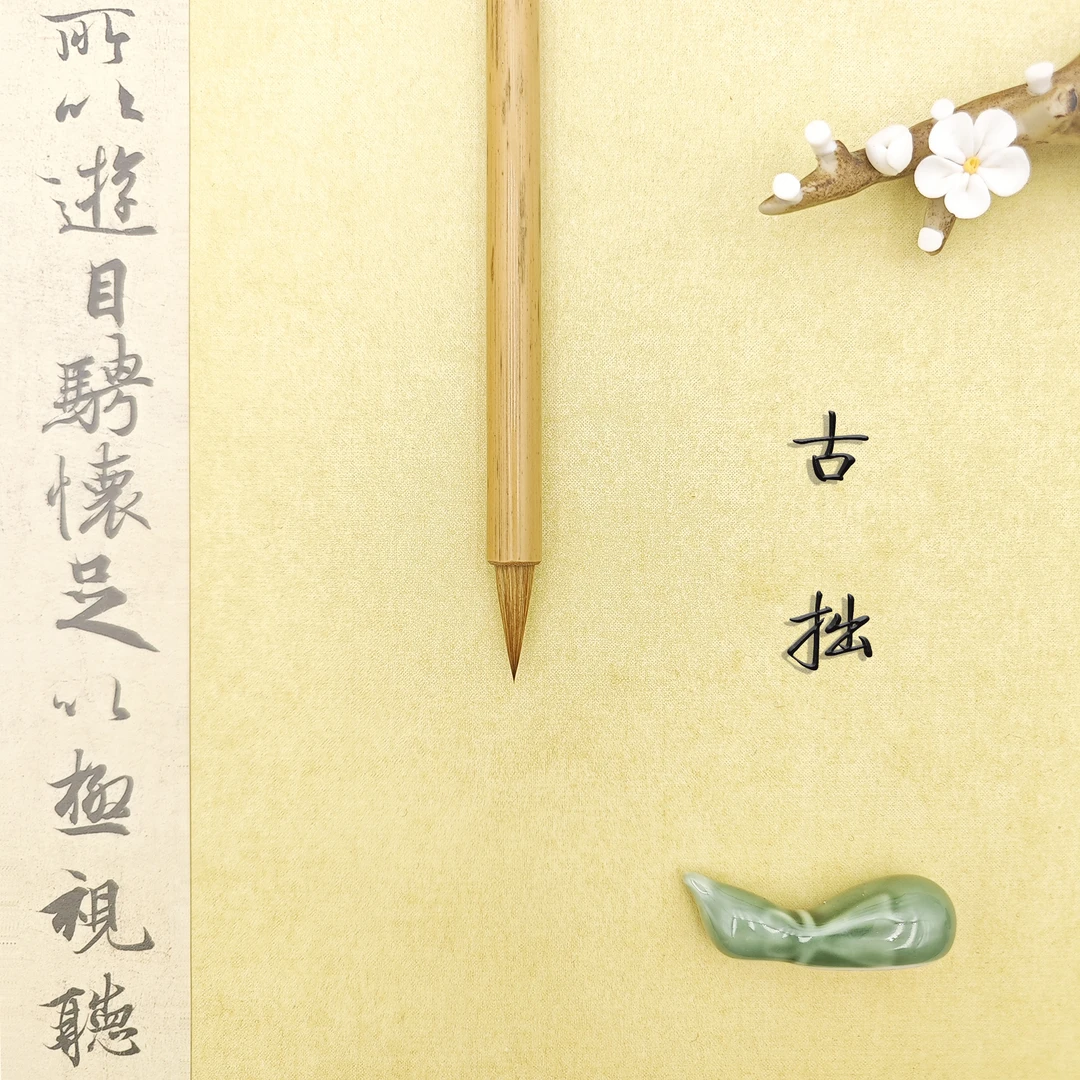 古拙
所以遊目騁懷足以極視聽